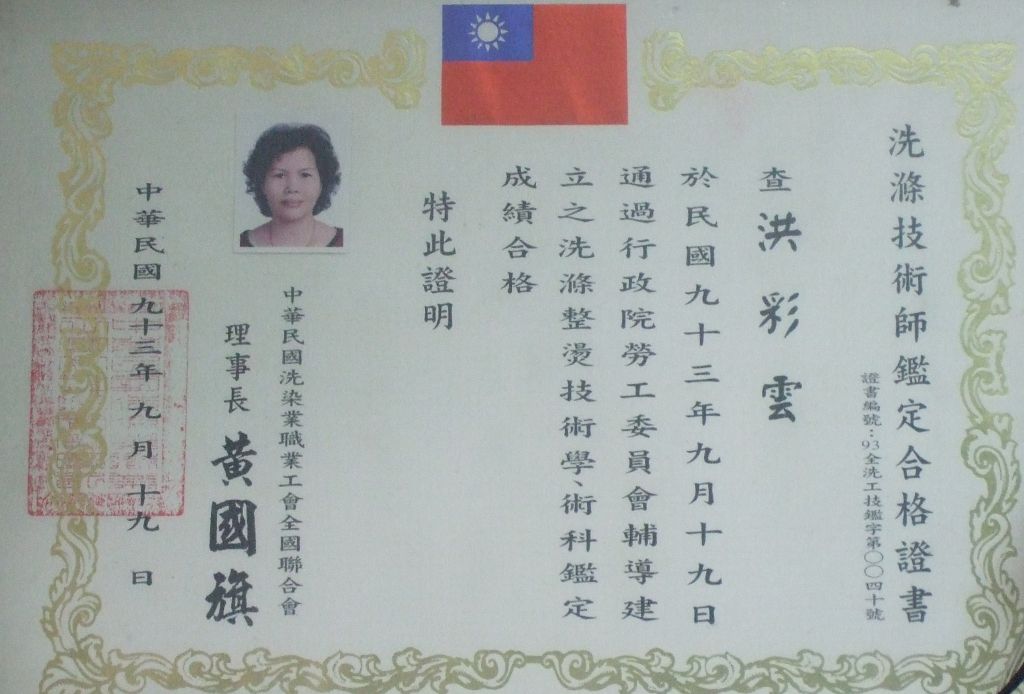 洗滌技術師鑑定合格證書
證書編號：93全洗工技鑑字第〇〇四十號
查洪彩雲
於民國九十三年九月十九日
通過行政院勞工委員會輔導建
立之洗滌整燙技術學、術科鑑定
成績合格
特此證明
中華民國洗染業職業工會全國聯合會
理事長 黃國旗
中華民國九十三年九月十九日